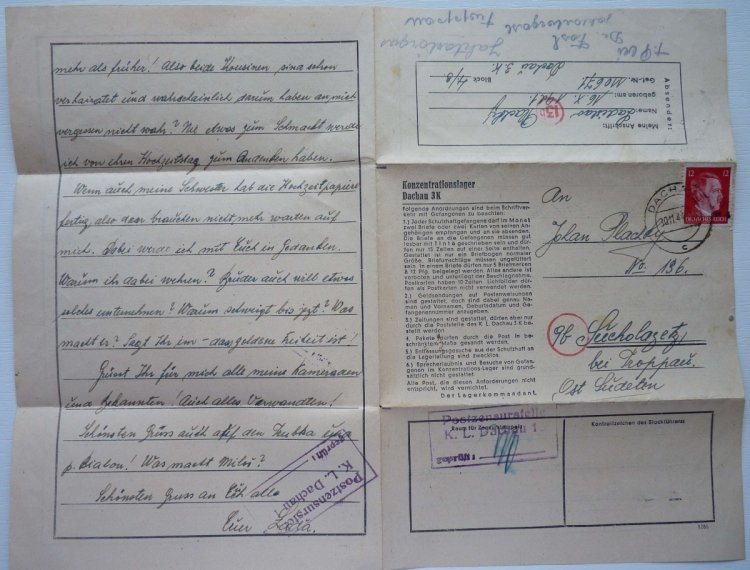 mehr als früher! Also beide Kousinen sind schon
verhairatet und wahrscheinlich darum haben an mich
vergessen nicht wahr? Nie etwas zum Schmackt werde
ich von ihren Hochzeitstag zum Andenken haben.
Wenn auch meine Schwester hab die Hochzeitpapiere
fertig, also dan brauchen nicht mehr warten auf
mich. Dabei werde ich mit Euch in Gedanken.
Warum ihr dabei wehren? Bruder auch will etwas
solches unternehmen? Warum schweigt bis jezt? Was
macht er? Sagt ihr im - das goldene Freiheit ist!
Grüsst Ihr für mich alle meine Kameraden
und Bekannten! Auch alles Verwandten!
Schönsten Gruss auch auf den
Was macht Miluš?
Schönsten Gruss an Euch alle
Euer Láďa.
Postzensurstelle
K. L. Dachau 1
geprüft:
Absender:
Meine Anschrift:
Name: Ladislav
geboren am: 16. X. 1921.
Gef.-Nr. Block 4/3
Dachau 3 K.
(13b)
Konzentrationslager
Dachau 3 K
Folgende Anordnungen sind beim Schriftverkehr mit Gefangenen zu beachten:
1.) Jeder Schutzhaftgefangene darf im Monat
zwei Briefe oder zwei Karten von seinen Angehörigen empfangen und an sie absenden.
Die Briefe an die Gefangenen müssen gut
lesbar mit Tinte geschrieben sein und dürfen
nur 15 Zeilen auf einer Seite enthalten.
Gestattet ist nur ein Briefbogen normaler
Größe. Briefumschläge müssen ungefüttert
sein. In einem Briefe dürfen nur 5 Briefmarken
à 12 Pfg. beigelegt werden. Alles andere ist
verboten und unterliegt der Beschlagnahme.
Postkarten haben 10 Zeilen. Lichtbilder dürfen als Postkarten nicht verwendet werden.
2.) Geldsendungen auf Postanweisungen
sind gestattet, doch sind dabei genau Name
und Vornamen, Geburtsdatum und Gefangenennummer anzugeben.
3.) Zeitungen sind gestattet, dürfen aber nur
durch die Poststelle des K. L. Dachau 3 K bestellt werden
4.) Pakete dürfen durch die Post in beschränktem Maße gesandt werden.
5.) Entlassungsgesuche aus der Schutzhaft an
die Lagerleitung sind zwecklos.
6.) Sprecherlaubnis und Besuche von Gefangenen im Konzentrations-Lager sind grundsätzlich nicht gestattet.
Alle Post, die diesen Anforderungen nicht
entspricht, wird vernichtet.
Der Lagerkommandant.
12 12
DEUTSCHES REICH
DACHAU
c
An
Johan
No. 136.
9b
bei Troppau.
Ost Sudeten
Postzensurstelle
K. L. Dachau 1
geprüft:
Kontrollzeichen des Blockführers